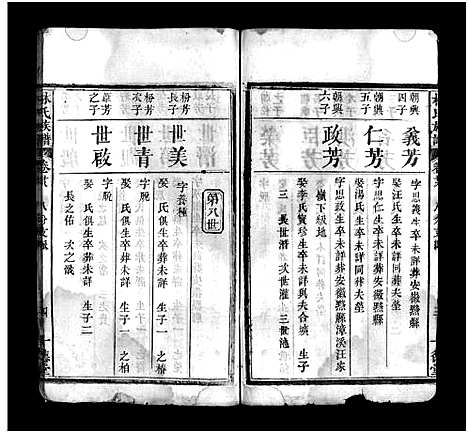 林氏族譜
朝典
四子
義芳
字思義生卒未詳葬安徽黟縣
娶汪氏生卒未詳同葬夫塋
朝典
五子
仁芳
字思仁生卒未詳葬安徽黟縣
娶湯氏生卒未詳同葬夫塋
朝典
六子
政芳
字思政生卒未詳葬安徽黟縣漳溪汪家
嶺下上級地
娶李氏寶崇生卒未詳與夫合塋 生子
三 長世濬 次世灌 三世滮
一德堂
林氏族譜
第八世
枌芳
長子
世美
字養種
娶 氏俱生卒葬未詳 生子一 之椿
枌芳
次子
世青
字脫
娶 氏俱生卒葬未詳 生子一 之柏
之子
世啟
字脫
娶 氏俱生卒葬未詳 生子二
長之佑 次之
四
一德堂